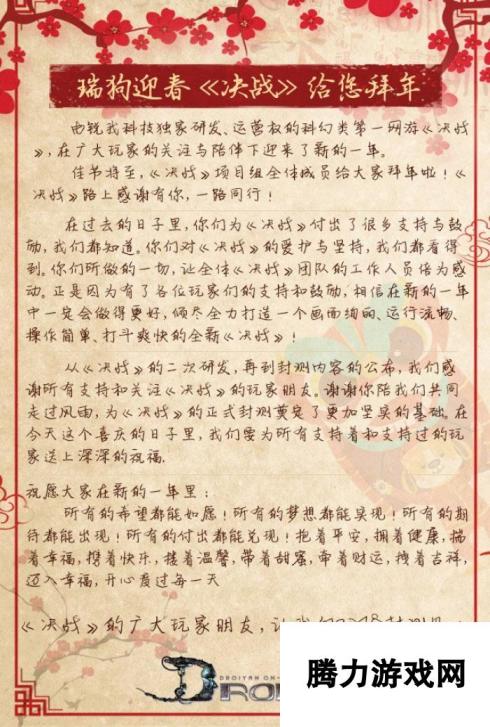 瑞狗迎春《决战》给您拜年
由锐我科技独家研发、运营权的科幻类第一网游《决战
》,在广大玩家的关注与陪伴下迎来了新的一年。
佳节将至,《决战》项目组全体成员给大家拜年啦!《
决战》路上感谢有你,一路同行!
在过去的日子里,你们为《决战》付出了很多支持与鼓
励,我们都知道。你们对《决战》的爱护与坚持,我们都看得
到。你们所做的一切,让全体《决战》团队的工作人员倍为感
动。正是因为有了各位玩家们的支持和鼓励,相信在新的一年
中一定会做得更好,倾尽全力打造一个画面绚丽、运行流畅、
操作简单、打斗爽快的全新《决战》!
从《决战》的二次研发,再到封测内容的公布,我们感
谢所有支持和关注《决战》的玩家朋友。谢谢你陪我们共同
走过风雨,为《决战》的正式封测奠定了更加坚实的基础。在
今天这个喜庆的日子里,我们要为所有支持着和支持过的玩
家送上深深的祝福.
祝愿大家在新的一年里:
所有的希望都能如愿!所有的梦想都能实现!所有的期
待都能出现!所有的付出都能兑现!抱着平安,拥着健康,揣
着幸福,携着快乐,搂着温馨,带着甜蜜,牵着财运,拽着吉祥,
迈入幸福,开心度过每一天
《决战》的广大玩家朋友,让我们
DROIYAN ON
腾力游戏网